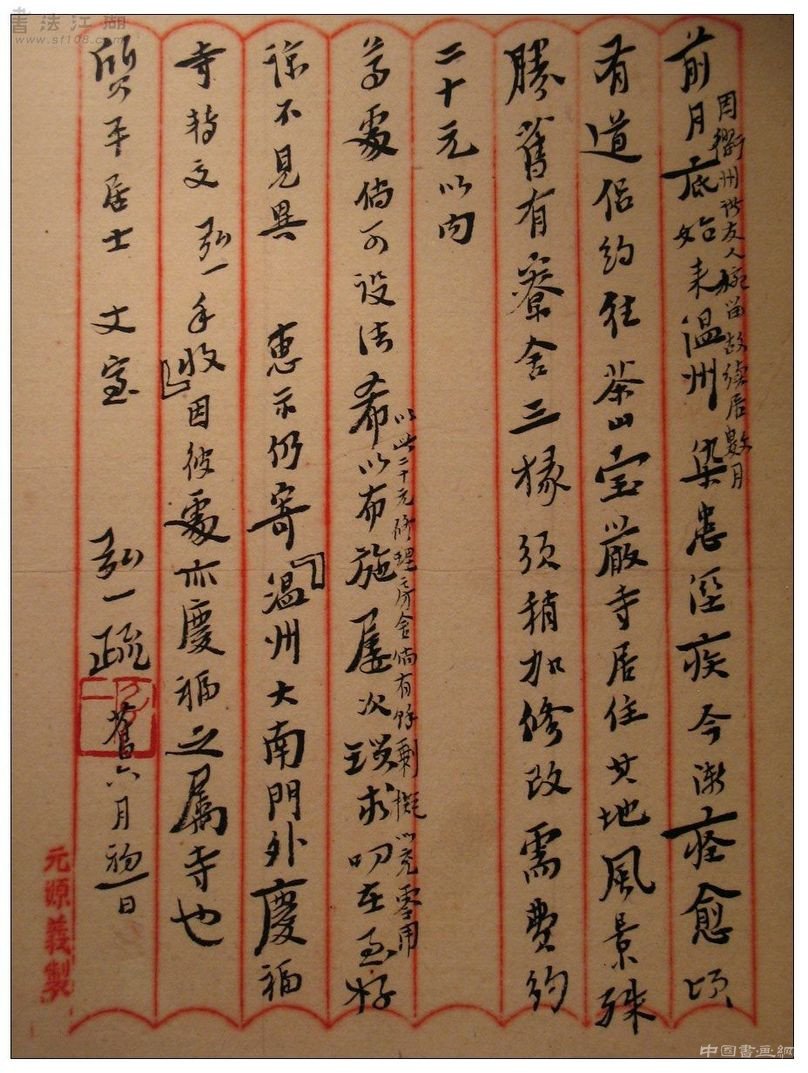 書法江湖
www.sf108.com
因衢州友人留故續居數月
前月底始来温州染患溼疾今漸痊愈頃
有道侣約往茶山宝嚴寺居住其地風景殊
勝舊有寮舍三椽須稍加修改需費約
二十元以内
以此二十元修理房舍倘有餘剩擬以充零用
尊處倘可設法希以布施屢次瑣求叨在至好
諒不見異 惠示仍寄「温州大南門外慶福
寺轉交 弘一手收」因彼處亦慶福之属寺也
質平居士 丈室 弘一疏 舊六月初一日
元源義製
中国書画網